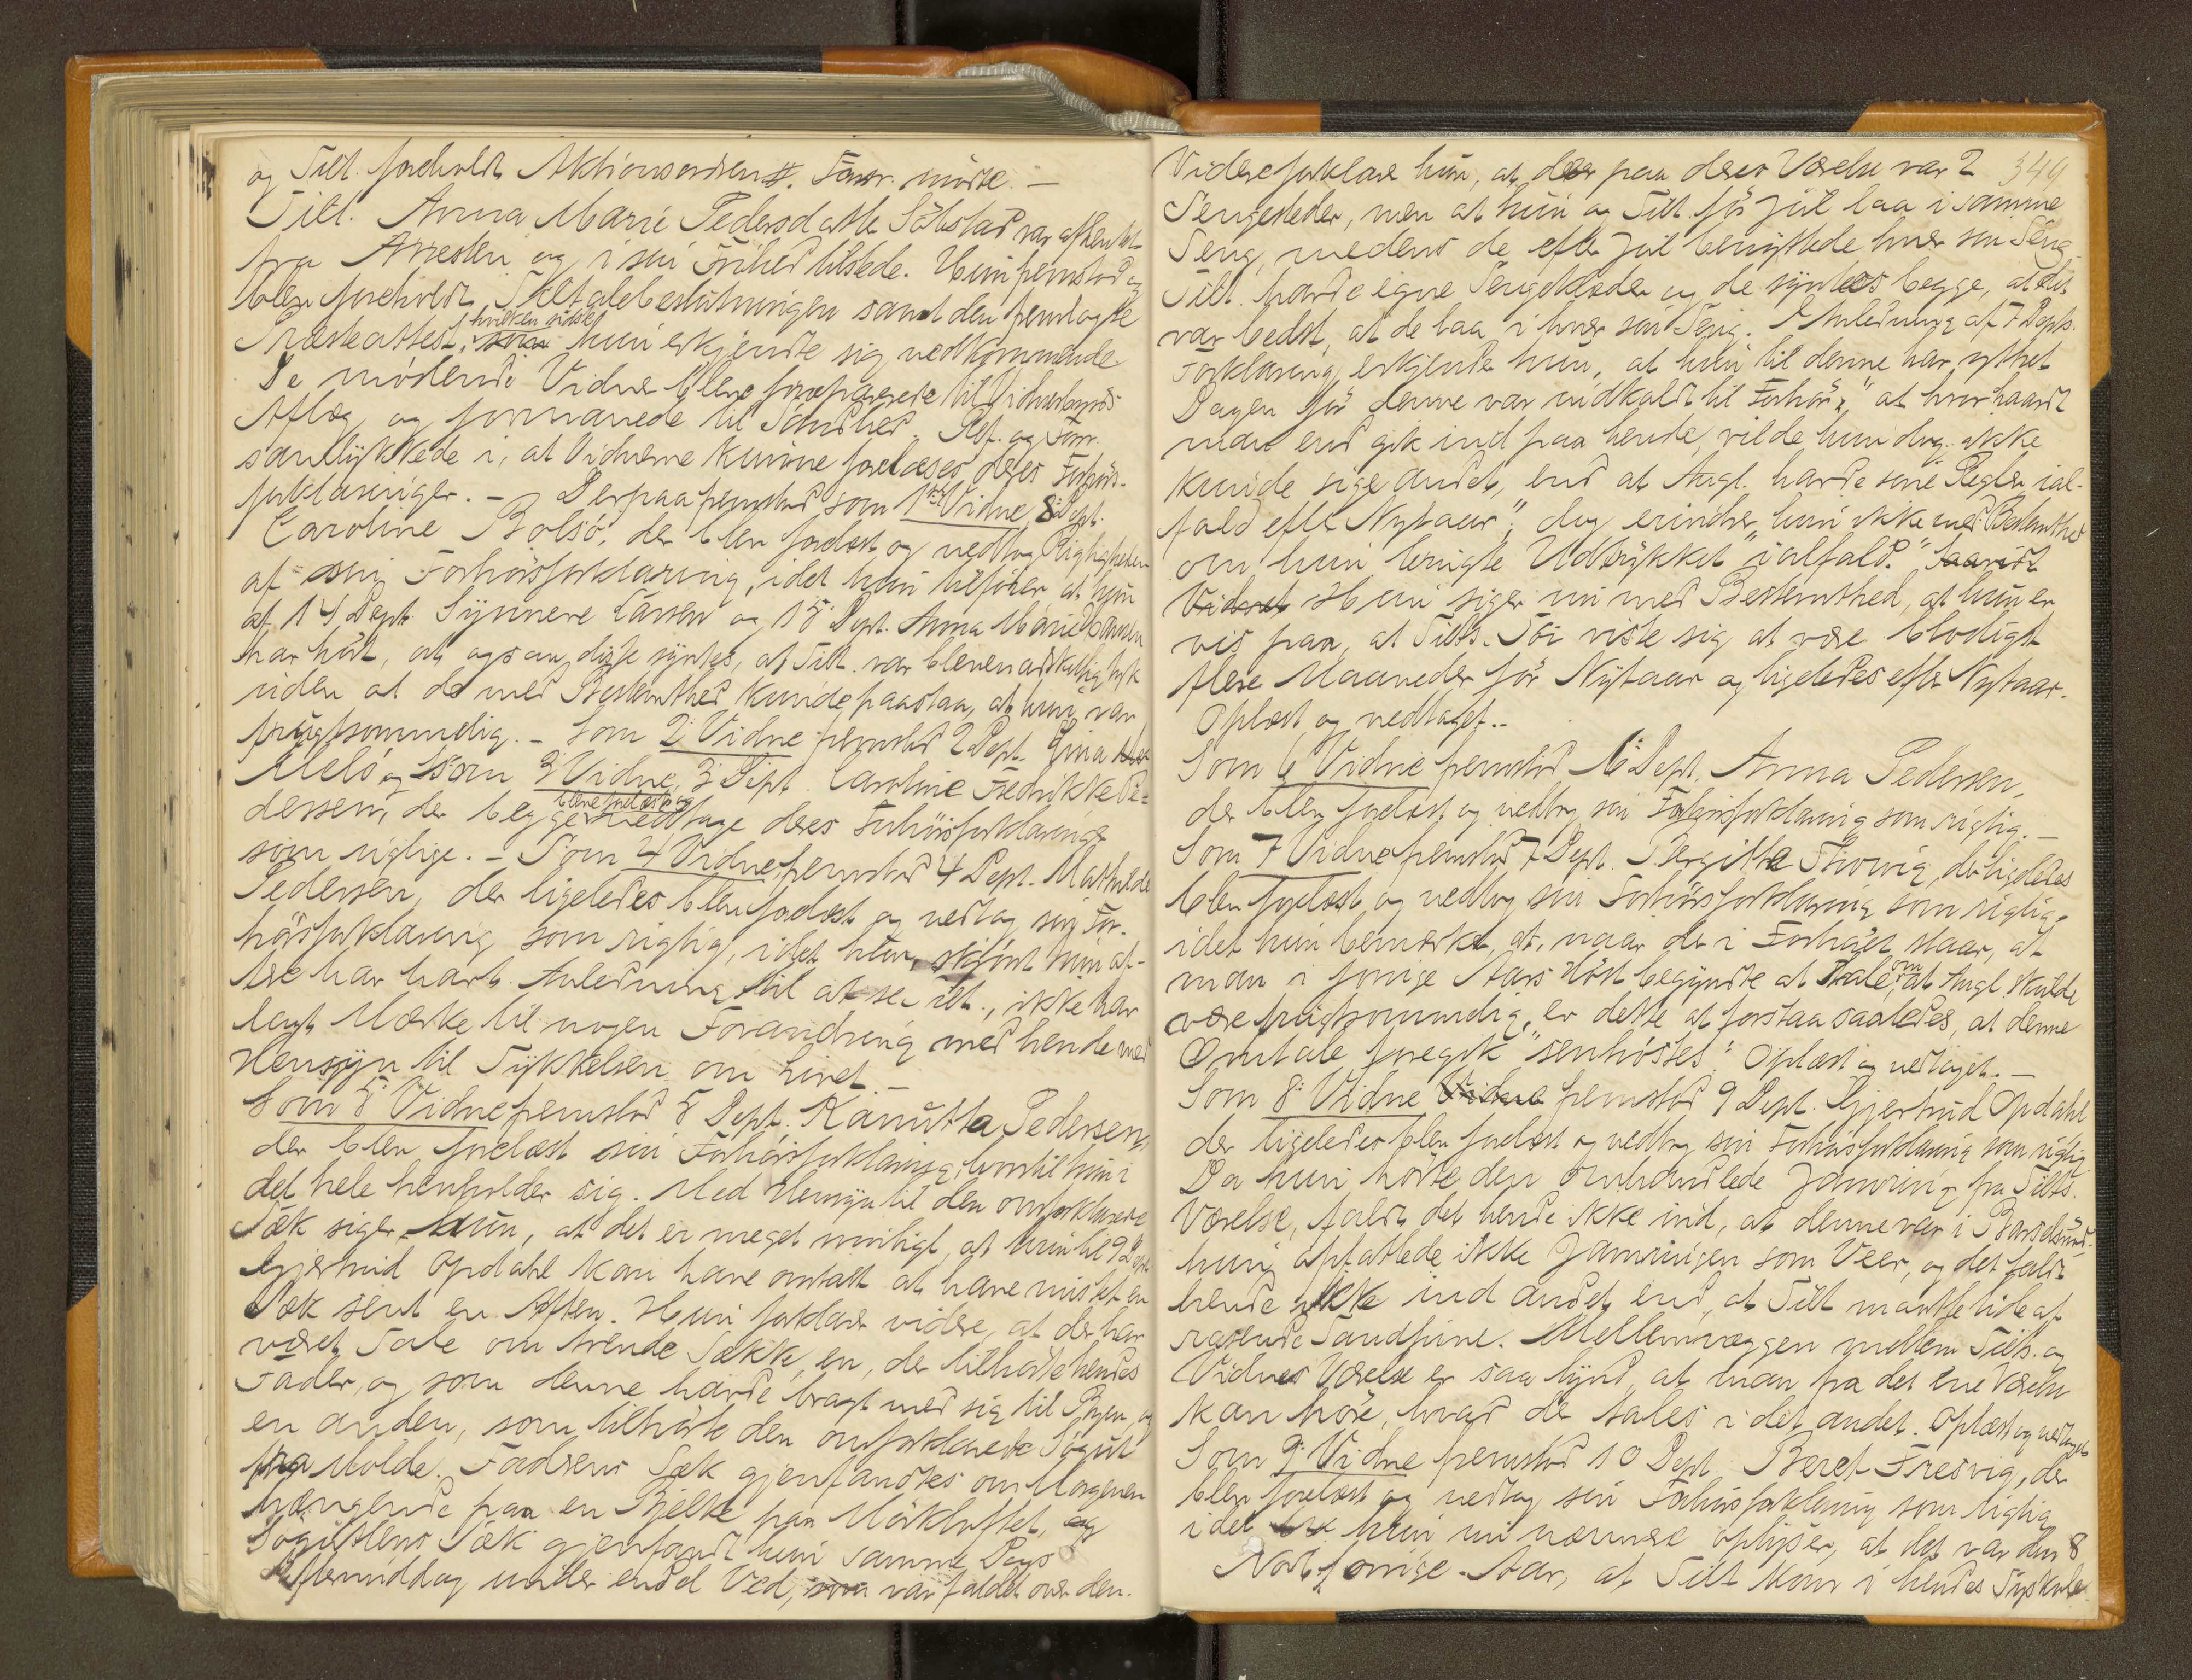 og Tilt. foreholdt Aktionsordren. Forsv. mødte. —
Tilt. Anna Marie Pedersdatter Solstad var afhentet
fra Arresten og i sin Frihed tilstede. Hun fremstod og
blev foreholdt Tiltalebeslutningen samt den fremlagte
Præsteattest, hvilken sidste hun erkjendte sig vedkommende
De mødende Vidner bleve præparerede til Vidnesbyrds
Aflæg og formanede til Sandhed. Akt. og Forsv.
samtykkede i, at Vidnerne kunne forelæses deres Forhørs-
forklaringer. — Derpaa fremstod som 1ste Vidne 8 Dept.
Caroline Bolsø, der blev forelæst og vedtog Rigtigheden
af sin Forhørsforklaring, idet hun tilføier at hun
af 14 Dept. Synnøve Larsen og 15 Dept. Anna Marie
har hørt, at ogsaa disse syntes, at Tilt. var bleven adskillig tyk
uden at de med Bestemthed kunde paastaa, at hun var
frugtsommelig. — Som 2' Vidne fremstod 2 Dept. Gina
Melø og som 3' Vidne 3' Dept. Caroline Fredrikke Pe=
dersen, der begge bleve forelæst og vedtage deres Forhørsforklaringer
som rigtige. — Som 4 Vidne fremstod 4 Dept. Mathilde
Pedersen, der ligeledes blev forelæst og vedtog sin For-
hørsforklaring som rigtig, idet hun, skjønt hun of-
tere har havt Anledning til at se Tilt., ikke har
lagt Mærke til nogen Forandring med hende med
Hensyn til Tykkelsen om Livet. —
Som 5' Vidne fremstod 5 Dept. Kanutta Pedersen,
der blev forelæst sin Forhørsforklaring, hvortil hun i
det hele henholder sig. Med Hensyn til den omforklarede
Sæk siger hun, at det er meget muligt, at hun til 9 Dept.
Gjertrud Opdahl kan have omtalt at have mistet en
Sæk sent en Aften. Hun forklarer videre, at der har
været Tale om trende Sække, en, der tilhørte hendes
Fader, og som denne havde bragt med sig til Byen, og
en anden, som tilhørte den omforklarede
fra Molde. Faderens Sæk gjenfandtes om Morgenen
hængende paa en Bjelke paa Mørkloftet, og
Sæk gjenfandt hun samme Dags
Eftermiddag under endel Ved, som var faldet over den.
349
Videre forklarer hun, at der paa deres Værelse var 2
Sengesteder, men at hun og Tilt. før Jul laa i samme
Seng, medens de efter Jul benyttede hver sin Seng.
Tilt. havde egne Sengeklæder og de syntes begge, at det
var bedst, at de laa i hver sin Seng. I Anledning af 7 Depts.
Forklaring erkjendte hun, at hun til denne har ythet
Dagen før denne var indkaldt til Forhør, "at hvor haardt
man end gik ind paa hende, vilde hun dog ikke
kunde sige andet, end at Angl. havde sine Regler, ial-
fald efter Nytaar", dog erindrer hun ikke med Bestemthed
om hun brugte Udtrykket "ialfald."
Vidnet Hun siger nu med Bestemthed, at hun er
vis paa, at Tilts. Tøi viste sig at være blodigt
flere Maaneder før Nytaar og ligeledes efter Nytaar.
Oplæst og vedtaget..
Som 6 Vidne fremstod 6 Dept. Anna Pedersen,
der blev forelæst og vedtog sin Forhørsforklaring som rigtig. —
Som 7 Vidne fremstod 7 Dept. Bergitta , der ligeledes
blev forelæst og vedtog sin Forhørsforklaring som rigtig,
idet hun bemærket, at, naar der i Forhøret staar, at
man i forrige Aars Høst begyndte at tale om, at Angl. skulde
være frugtsommelig, er dette at forstaa saaledes, at denne
Omtale foregik "senhøstes." Oplæst og vedtaget. —
Som 8' Vidne Vidne fremstod 9 Dept. Gjertrud Opdahl
der ligeledes blev forelæst og vedtog sin Forhørsforklaring som rigtig.
Da hun hørte den omhandlede Jamring fra Tilts.
Værelse, faldt det hende ikke ind, at denne var i Barselsnød,
hun opfattede ikke Jamringen som Veer, og det faldt
hende ikke ind andet end, at Tilt maatte lide af
rasende Tandpine. Mellemvæggen mellem Tilts. og
Vidnes Værelse er saa tynd, at man fra det ene Værelse
kan høre, hvad der tales i det andet. Oplæst og vedtaget
Som 9' Vidne fremstod 10 Dept. Beret Fresvig, der
blev forelæst og vedtog sin Forhørsforklaring som rigtig
idet hun nu nærmere oplyser, at det var den 8
Novbr forrige Aar, at Tilt kom i hendes Syskole